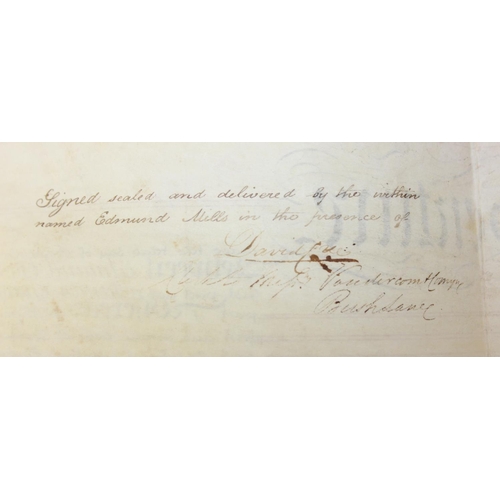 Signed sealed and delivered by the within
named Edmund Mills in the presence of
David
Vandercom &
Bush Lane